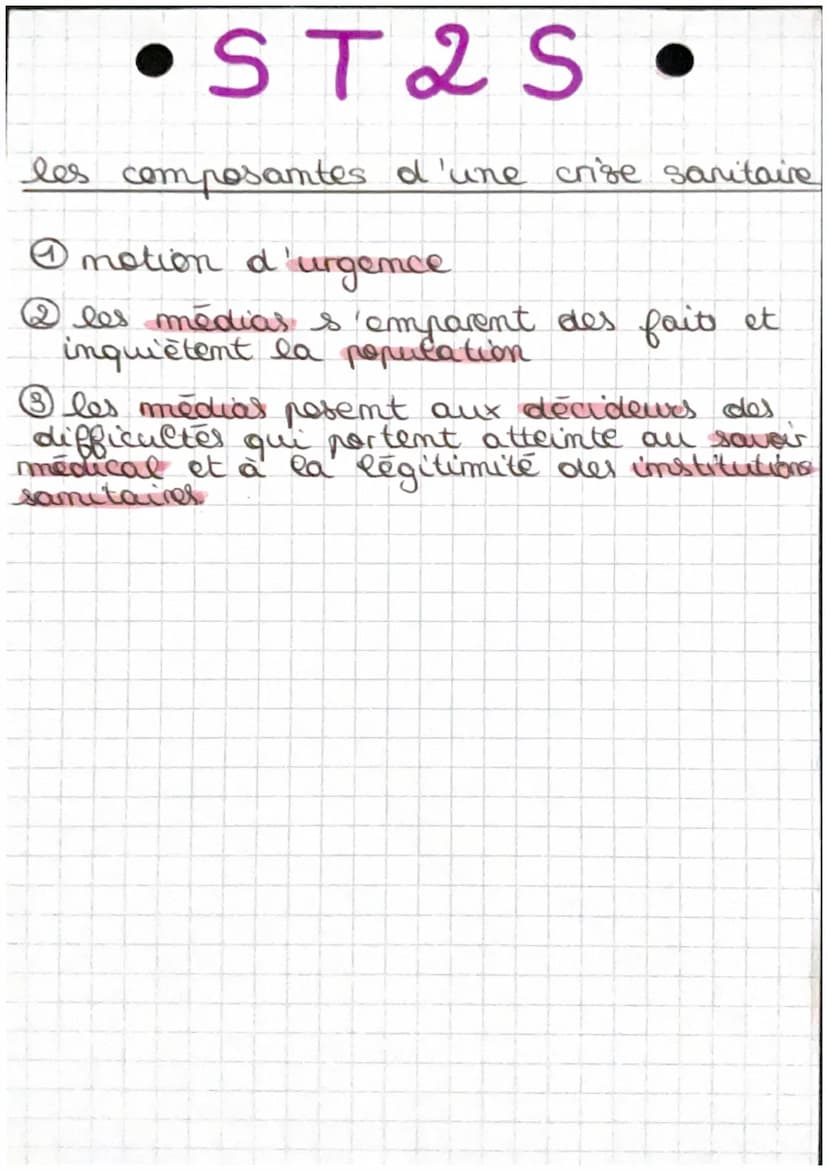 • ST2S •
les composantes d'une crise sanitaire
① notion d'urgence
② les médias s'emparent des faits et
inquiètent la population
③ les médias posent aux décideurs des
difficultés qui portent atteinte au savoir
médical et à la légitimité des institutions
sanitaires.